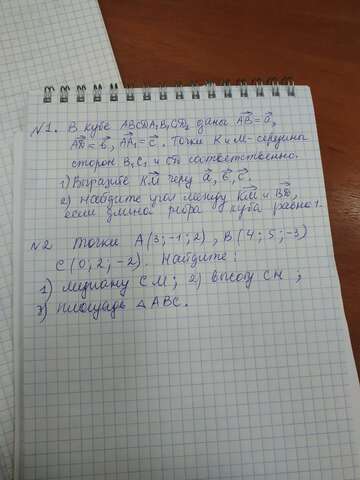 N1. В кубе ABCDA₁B₁C₁D₁ даны AB = a,
AD = b, AA₁ = c. Точки K и M- середины
сторон B₁C₁ и CD соответственно.
1) Выразите KM через a, b, c.
2) Найдите угол между KM и BD,
если длина ребра куба равна 1.
N2 Точки A(3;-1;2), B(4;5;-3)
C(0;2;-2). Найдите:
1) медиану CM; 2) высоту CH;
3) площадь △ABC.